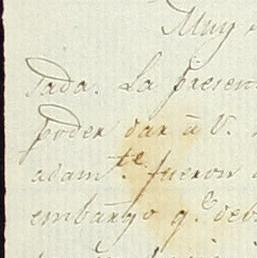 Muy
sada. La presen
poder dar á V.
adam.te fueron
embargo q.e deb